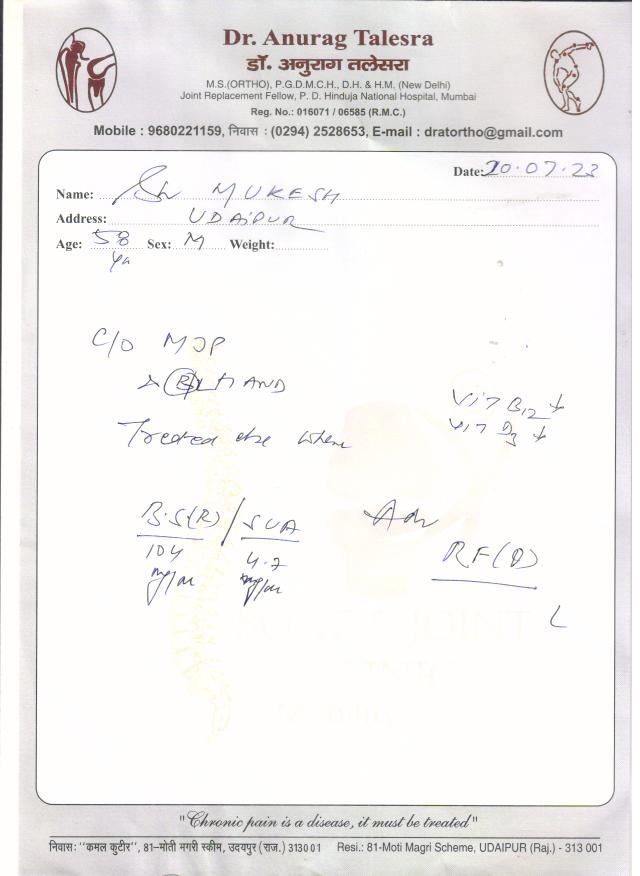 Dr. Anurag Talesra
डॉ. अनुराग तलेसरा
M.S.(ORTHO), P.G.D.M.C.H., D.H. & H.M. (New Delhi)
Joint Replacement Fellow, P. D. Hinduja National Hospital, Mumbai
Reg. No.: 016071 / 06585 (R.M.C.)
Mobile : 9680221159, निवास : (0294) 2528653, E-mail : dratortho@gmail.com
Date: 20.07.23
Name: Sh MUKESH
Address: UDAIPUR
Age: 58 Sex: M Weight:
C/O MJP
HAND
Vit B12 ↓
Vit D3 ↓
Treated else where
B.S(R) / SUA
104 4.7
Adv
RF(Q)
"Chronic pain is a disease, it must be treated"
निवास: "कमल कुटीर", 81-मोती मगरी स्कीम, उदयपुर (राज.) 313001 Resi.: 81-Moti Magri Scheme, UDAIPUR (Raj.) - 313 001